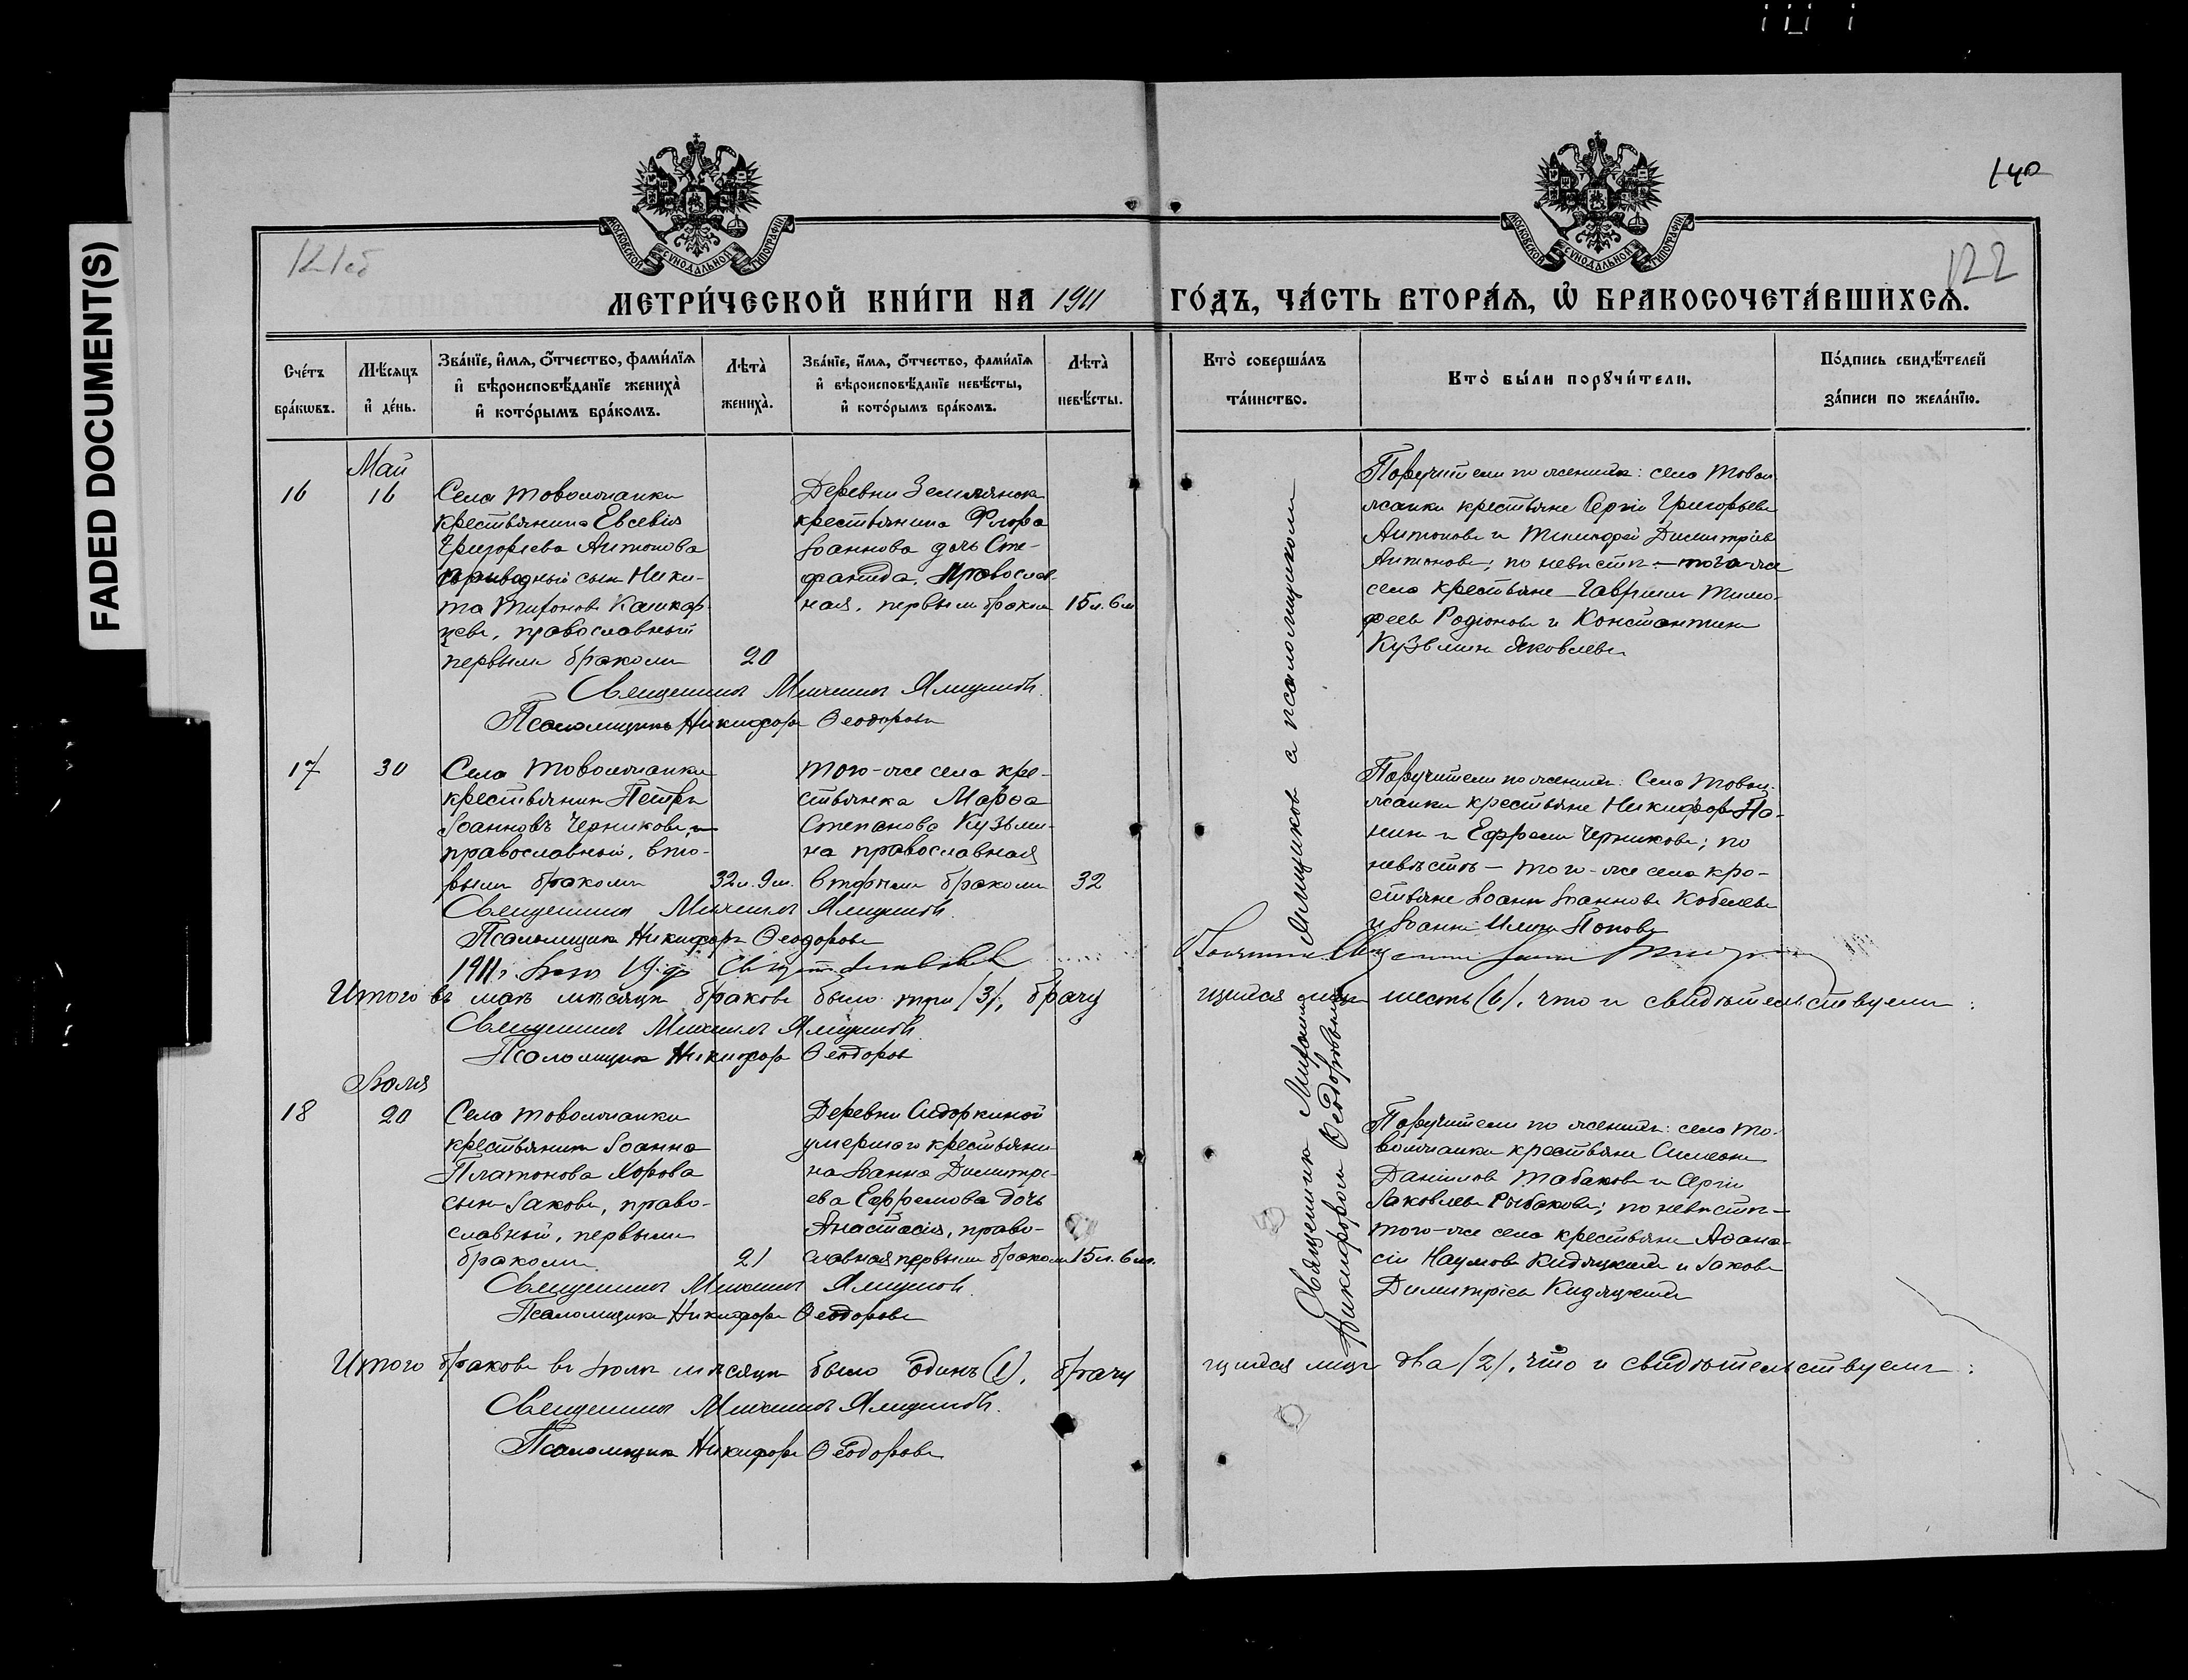 FADED DOCUMENT(S)
140
122
МОСКОВСКОЙ СѴНОДАЛЬНОЙ ТИПОГРАФІИ
МОСКОВСКОЙ СѴНОДАЛЬНОЙ ТИПОГРАФІИ
МЕТРИ́ЧЕСКОЙ КНИ́ГИ НА 1911 ГО́ДЪ, ЧА́СТЬ ВТОРА́Ѧ, Ѡ҆ БРАКОСОЧЕТА́ВШИХСѦ.
Сче́тъ
бра́кѡвъ.
Мѣ́сяцъ
и҆ де́нь.
Зва́нїе, и҆́мя, ѻ҆́тчество, фами́лїя
и҆ вѣроисповѣ́данїе жениха̀
и҆ кото́рымъ бра́комъ.
Лѣта̀
жениха̀.
Зва́нїе, и҆́мя, ѻ҆́тчество, фами́лїя
и҆ вѣроисповѣ́данїе невѣ́сты,
и҆ кото́рымъ бра́комъ.
Лѣта̀
невѣ́сты.
Кто̀ соверша́лъ
та́инство.
Кто̀ бы́ли порꙋчи́тели.
По́дпись свидѣ́телей
за́писи по жела́нїю.
Май
16
16
Села Товолжанки
крестьянина Евсевія
Григоріева Антонова
приводный сынъ Ники-
та Тихоновъ Кашкар-
цевъ, православный
первымъ бракомъ
20
Деревни Землянок
крестьянина Флора
Іоаннова дочь Сте-
фанида, Православ-
ная, первымъ бракомъ
15 л. 6 м
Поручители по женихѣ: села Товол-
жанки крестьяне Сергій Григорьевъ
Антоновъ и Тимофей Димитріевъ
Антоновъ; по невѣстѣ – того-же
села крестьяне Гавріилъ Тимо-
феевъ Родіоновъ и Константинъ
Кузьминъ Яковлевъ
Священникъ Михаилъ Ямщиковъ.
Псаломщикъ Никифоръ Ѳеодоровъ
17
30
Села Товолжанки
крестьянинъ Петръ
Іоанновъ Черниковъ,
православный, вто-
рымъ бракомъ
32 л. 9 м.
Того-же села кре-
стьянка Марѳа
Степанова Кузьми-
на православная
вторымъ бракомъ
32
Поручители по женихѣ: Села Товол-
жанки крестьяне Никифоръ Па-
нинъ и Ефремъ Черниковъ; по
невѣстѣ – того-же села кре-
стьяне Іоаннъ Іоанновъ Кобелевъ
и Іоаннъ Ильинъ Поповъ
Священникъ Михаилъ Ямщиковъ.
Псаломщикъ Никифоръ Ѳеодоровъ
1911 г.
Итого въ маѣ мѣсяцѣ браковъ было три (3), брачу
щихся лицъ шесть (6), что и свидѣтельствуемъ:
Священникъ Михаилъ Ямщиковъ
Псаломщикъ Никифоръ Ѳеодоровъ
Іюля
18
20
Села Товолжанки
крестьянина Іоанна
Платонова Хорова
сынъ Іаковъ, право-
славный, первымъ
бракомъ
21
Деревни Сидоркиной
умершаго крестьяни-
на Іоанна Димитрі-
ева Ефремова дочь
Анастасія, право-
славная первымъ бракомъ
15 л. 6 м.
Поручители по женихѣ: села То-
волжанки крестьяне Симеонъ
Даниловъ Табаковъ и Сергій
Іаковлевъ Рыбаковъ; по невѣстѣ –
того-же села крестьяне Аѳана-
сій Наумовъ Кидяцкій и Іаковъ
Димитріевъ Кидяцкій
Священникъ Михаилъ Ямщиковъ.
Псаломщикъ Никифоръ Ѳеодоровъ
Итого браковъ въ Іюлѣ мѣсяцѣ было одинъ (1), брачу
щихся лицъ два (2), что и свидѣтельствуемъ:
Священникъ Михаилъ Ямщиковъ.
Псаломщикъ Никифоръ Ѳеодоровъ
Священникъ Михаилъ Ямщиковъ с псаломщикомъ
Никифоромъ Ѳеодоровымъ